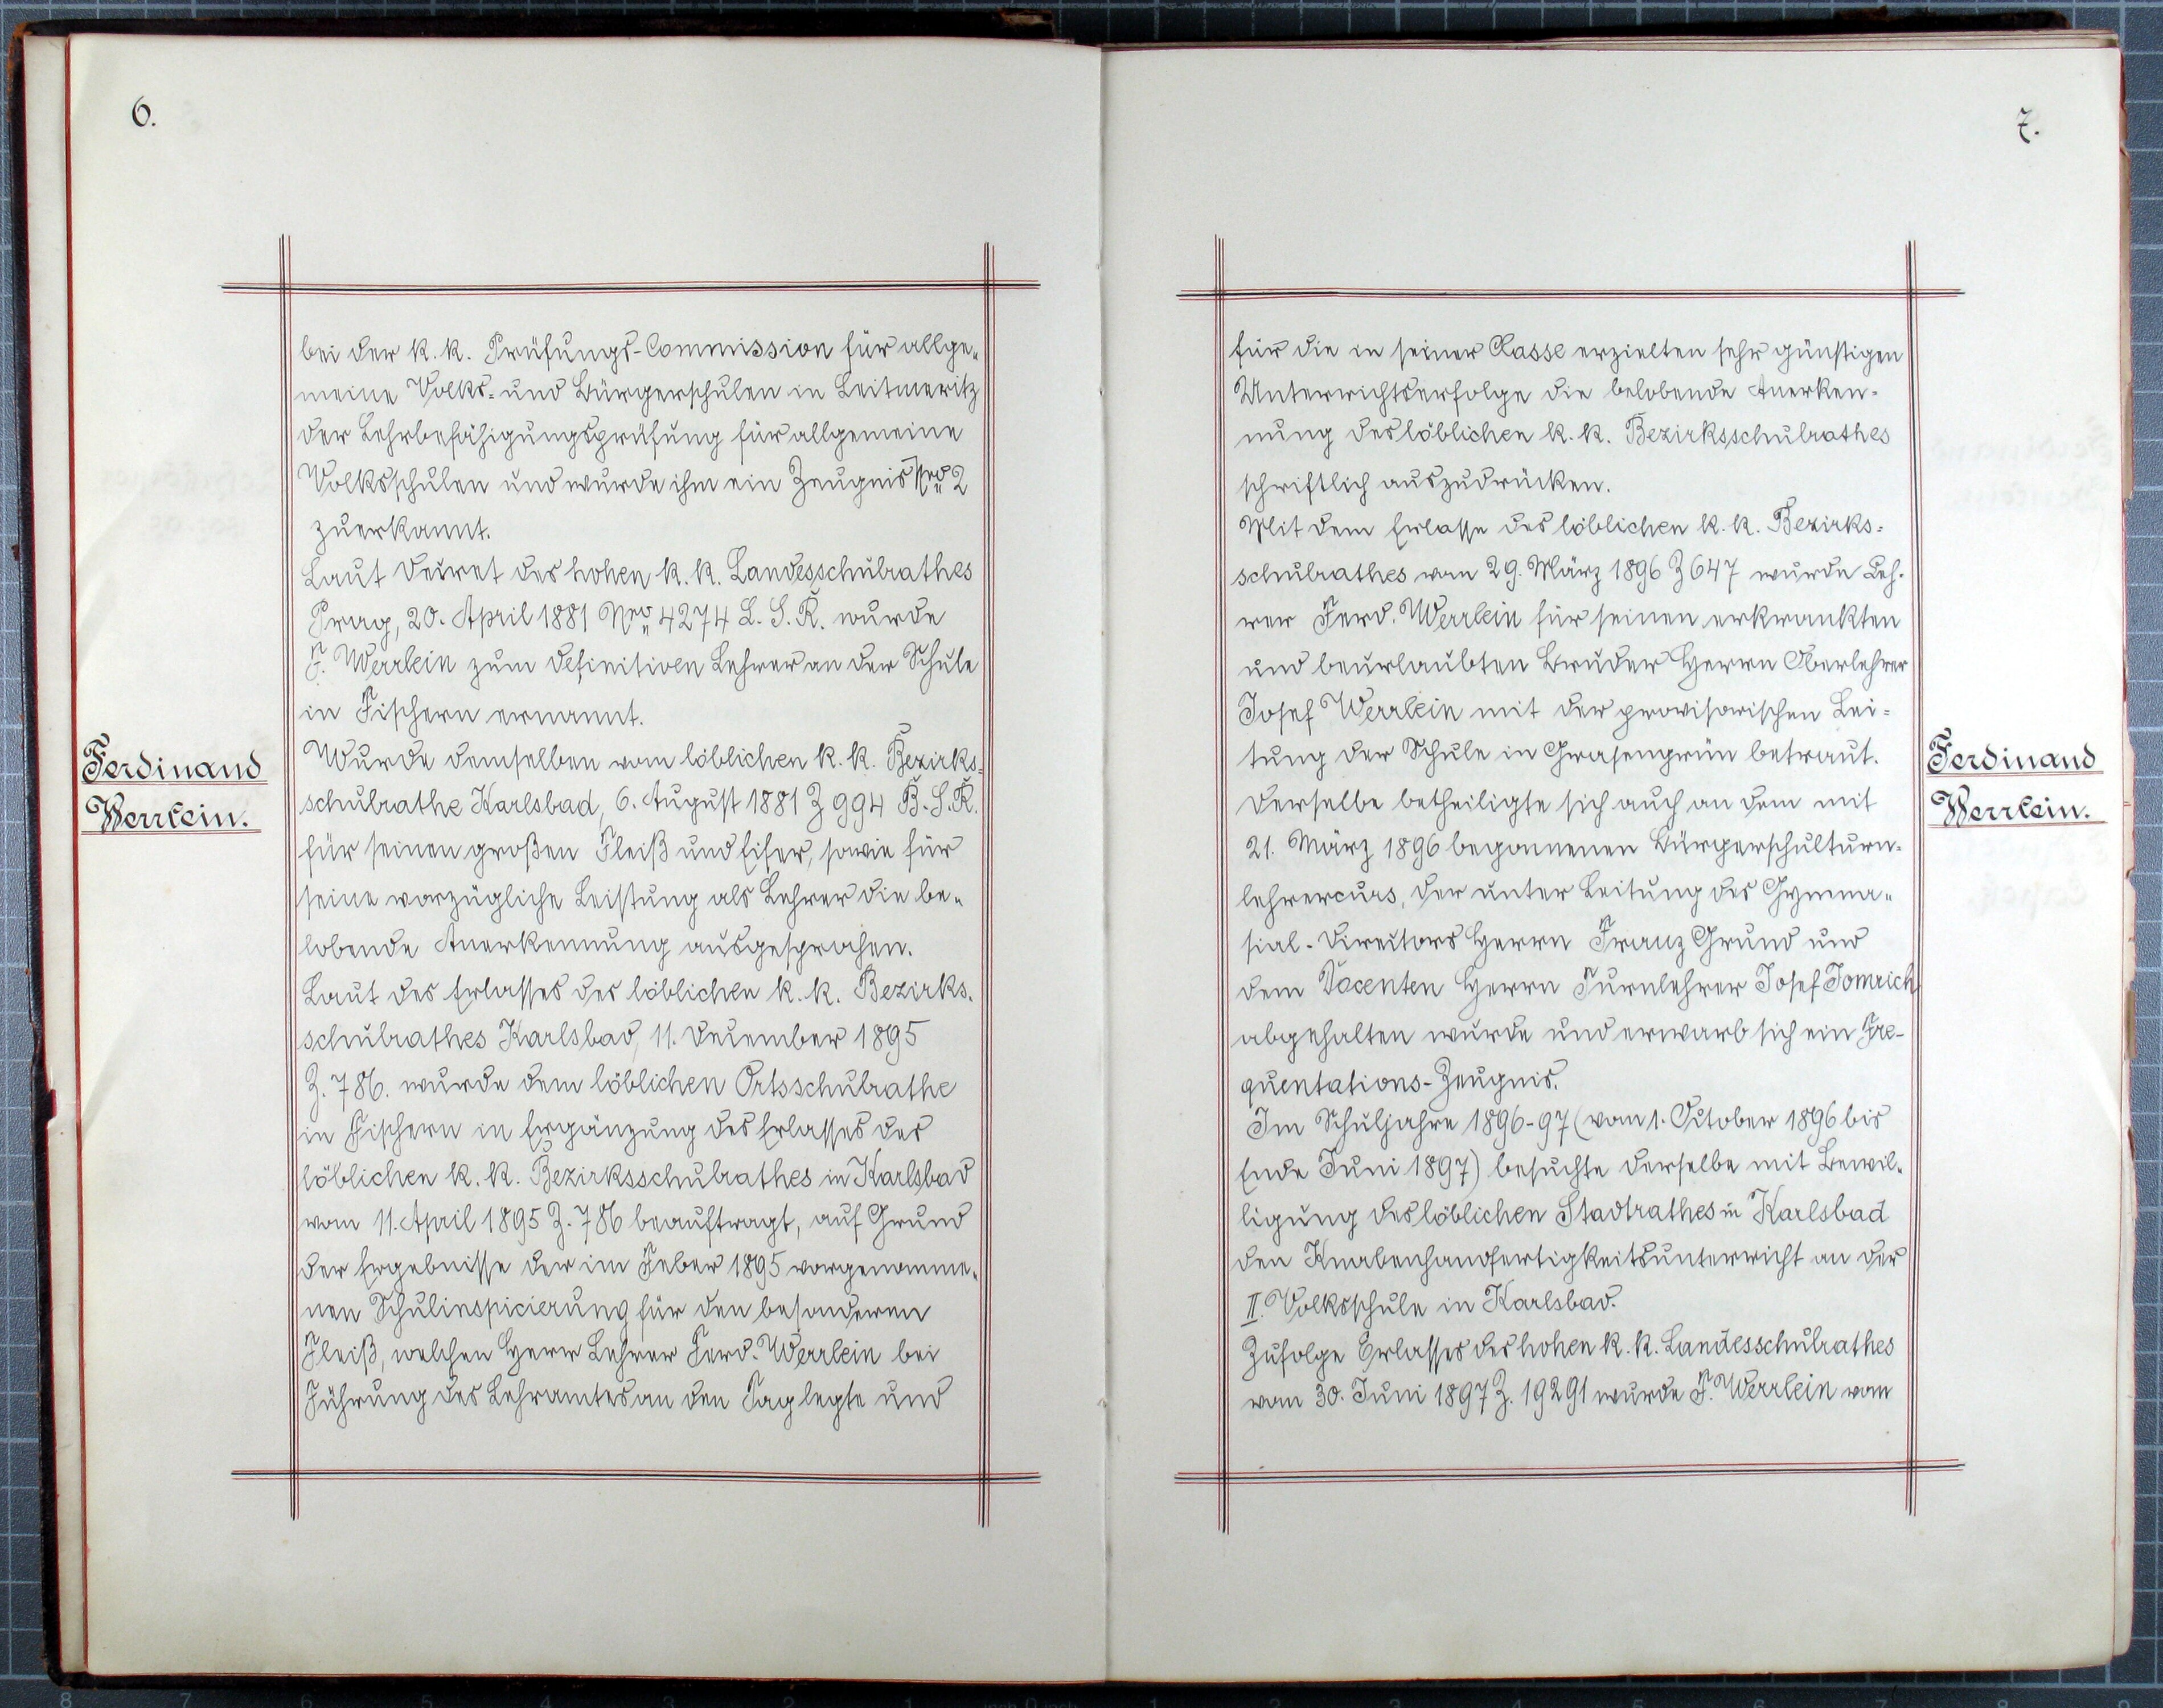 6.
bei der k. k. Prüfungs-Commission für allge-
meine Volks- und Bürgerschulen in Leitmeritz
der Lehrbefähigungsprüfung für allgemeine
Volksschulen und wurde ihm ein Zeugnis Nro 2
zuerkannt.
Laut Decret des hohen k. k. Landesschulrathes
Prag, 20. April 1881 Nro 4274 L. S. R. wurde
F. Werrlein zum definitiven Lehrer an der Schule
in Fischern ernannt.
Ferdinand
Werrlein.
Wurde demselben vom löblichen k. k. Bezirks-
schulrathe Karlsbad, 6. August 1881 Z 994 B. S. R.
für seinen großen Fleiß und Eifer, sowie für
seine vorzügliche Leistung als Lehrer die be-
lobende Anerkennung ausgesprochen.
Laut des Erlasses des löblichen k. k. Bezirks-
schulrathes Karlsbad, 11. December 1895
Z. 786. wurde dem löblichen Ortsschulrathe
in Fischern in Ergänzung des Erlasses des
löblichen k. k. Bezirksschulrathes in Karlsbad
vom 11. April 1895 Z. 786 beauftragt, auf Grund
der Ergebnisse der im Feber 1895 vorgenomme-
nen Schulinspicierung für den besonderen
Fleiß, welchen Herr Lehrer Ferd. Werrlein bei
Führung des Lehramtes an den Tag legte und
7.
für die in seiner Classe erzielten sehr günstigen
Unterrichtserfolge die belobende Anerken-
nung des löblichen k. k. Bezirksschulrathes
schriftlich auszudrücken.
Mit dem Erlasse des löblichen k. k. Bezirks-
schulrathes vom 29. März 1896 Z 647 wurde Leh-
rer Ferd. Werrlein für seinen erkrankten
und beurlaubten Bruder Herrn Oberlehrer
Josef Werrlein mit der provisorischen Lei-
tung der Schule in Grasengrün betraut.
Ferdinand
Werrlein.
Derselbe betheiligte sich auch an dem mit
21. März 1896 begonnenen Bürgerschulturn-
lehrercurs, der unter Leitung des Gymna-
sial-Directors Herrn Franz Grund und
dem Docenten Herrn Turnlehrer Josef Tomrich
abgehalten wurde und erwarb sich ein Fre-
quentations-Zeugnis.
Im Schuljahre 1896-97 (vom 1. October 1896 bis
Ende Juni 1897) besuchte derselbe mit Bewil-
ligung des löblichen Stadtrathes in Karlsbad
den Knabenhandfertigkeitsunterricht an der
II. Volksschule in Karlsbad.
Zufolge Erlasses des hohen k. k. Landesschulrathes
vom 30. Juni 1897 Z. 19291 wurde F. Werrlein vom